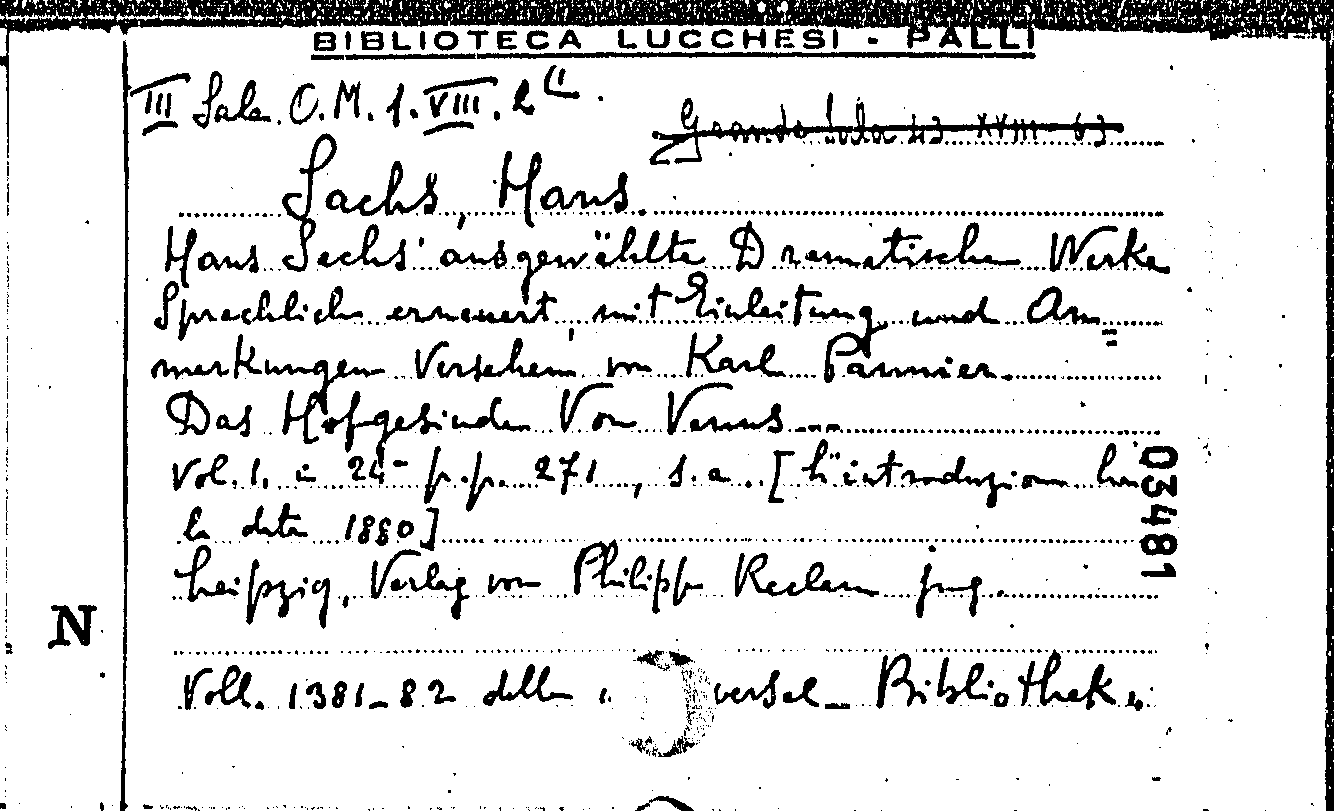 BIBLIOTECA LUCCHESI - PALLI
III Sala. O. M. 1. VIII. 2
Grande Sala 43 XVIII 63
Sachs, Hans.
Hans Sachs' ausgewählte Dramatische Werke
Sprachlich erneuert, mit Einleitung und An=
merkungen Versehen von Karl Pannier.
Das Hofgesinde Von Venus...
Vol. 1. in 24- p.p. 271, s.a. [L'introduzione ha
la data 1880]
Leipzig, Verlag von Philipp Reclam jug.
N
Voll. 1381-82 della versal- Bibliothek"
03481